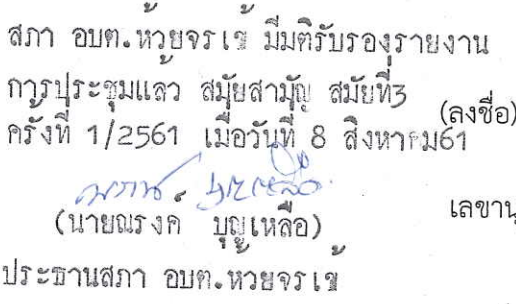 สภา อบต.ห้วยจรเข้ มีมติรับรองรายงาน
การประชุมแล้ว สมัยสามัญ สมัยที่3
ครั้งที่ 1/2561 เมื่อวันที่ 8 สิงหาคม61
(ลงชื่อ)
(นายณรงค์ บุญเหลือ)
เลขานุ
ประธานสภา อบต.ห้วยจรเข้